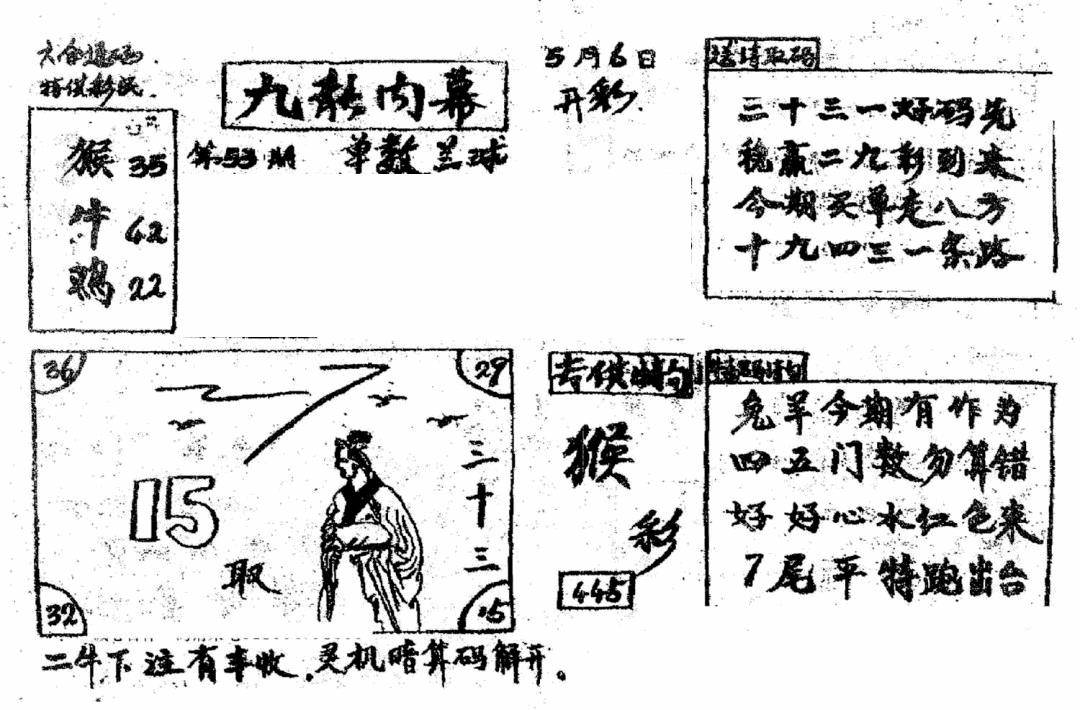 六合通码.
特供彩民.
猴 35
牛 42
鸡 22
九龙内幕
第53期 单数兰球
5月6日
开彩.
送诗取码
三十三一好码先
稳赢二九彩到来
今期买单走八方
十九四三一条路
36
29
15
取
三十三
32
15
专供特句
猴
彩
445
兔羊今期有作为
四五门数勿算错
好好心水红色来
7尾平特跑出台
二牛下注有丰收.灵机暗算码解开。